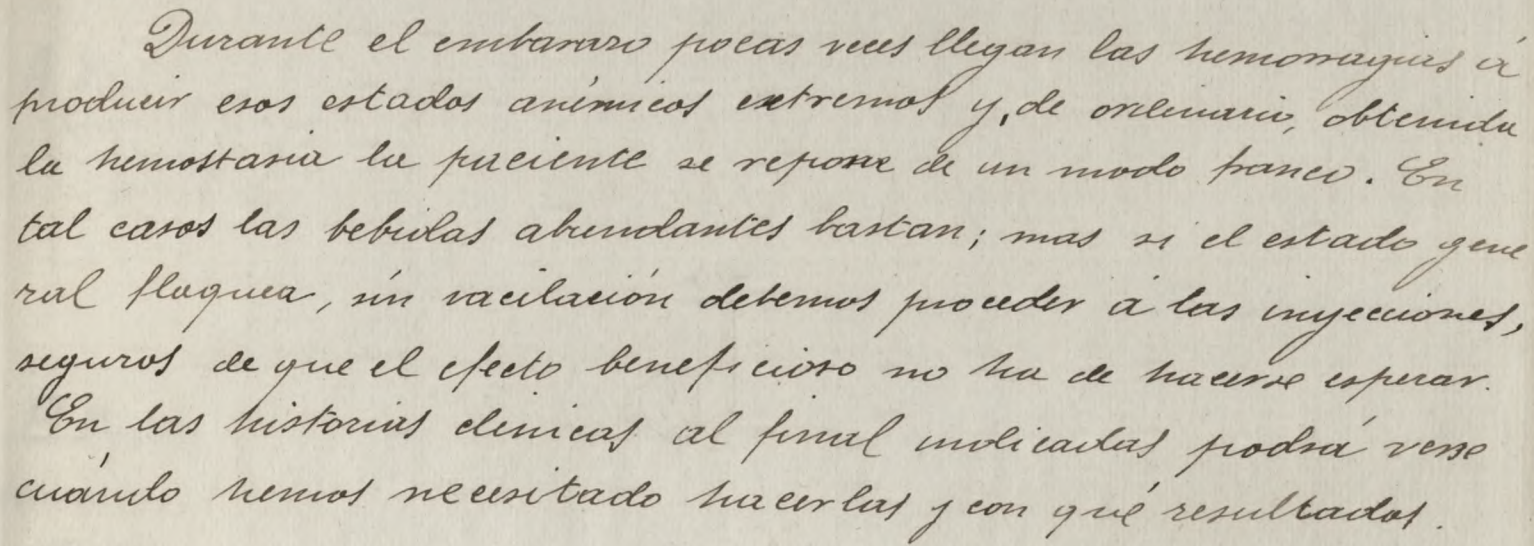 Durante el embarazo pocas veces llegan las hemorragias á
producir esos estados anémicos extremos y, de ordinario, obtenida
la hemostasia la paciente se repone de un modo franco. En
tal casos las bebidas abundantes bastan; mas si el estado gene
ral flaquea, sin vacilación debemos proceder á las inyecciones,
seguros de que el efecto beneficioso no ha de hacerse esperar.
En las historias clínicas al final indicadas podrá verse
cuándo hemos necesitado hacerlas y con qué resultados.